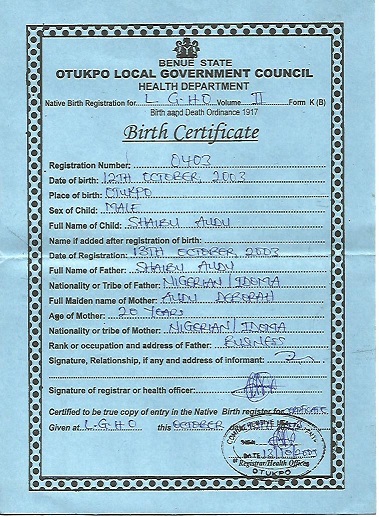 BENUE STATE
OTUKPO LOCAL GOVERNMENT COUNCIL
HEALTH DEPARTMENT
Native Birth Registration for L.G.H.O Volume II Form K (B)
Birth aapd Death Ordinance 1917
Birth Certificate
Registration Number: 0403
Date of birth: 12TH OCTOBER, 2003
Place of birth: OTUKPO
Sex of Child: MALE
Full Name of Child: SHAIBU AUDU
Name if added after registration of birth:
Date of Registration: 13TH OCTOBER, 2003
Full Name of Father: SHAIBU AUDU
Nationality or Tribe of Father: NIGERIAN/IDOMA
Full Maiden name of Mother: AUDU DEBORAH
Age of Mother: 20 YEARS
Nationality or tribe of Mother: NIGERIAN/IDOMA
Rank or occupation and address of Father: BUSINESS
Signature, Relationship, if any and address of informant:
Signature of registrar or health officer:
Certified to be true copy of entry in the Native Birth register for
Given at L.G.H.O this OCTOBER
COMPREHENSIVE HEALTH
SIGN
DATE
Registrar/Health Officer
OTUKPO